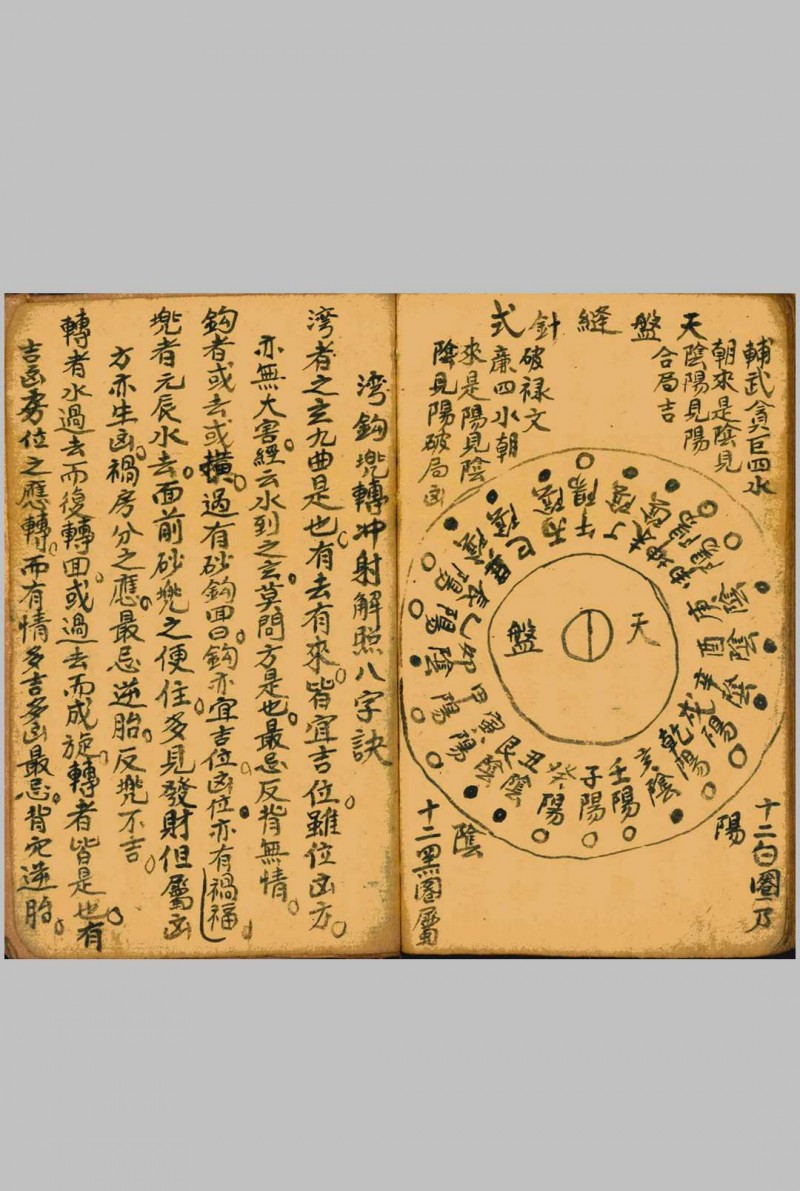 天盤縫針式
輔武貪巨四水
朝來是陰見
陰陽見陽
合局吉
破祿文
廉四水朝
來是陽見陰
陰見陽破局凶
天盤
午陽
丁陰
未陰
坤陽
申陽
庚陰
酉陰
辛陰
戌陽
乾陽
亥陰
壬陽
子陽
癸陽
丑陰
艮陰
寅陽
甲陽
卯陰
乙陽
辰陽
巽陰
巳陰
丙陰
十二白圈乃
陽
十二黑圈屬
陰
湾鈎兠轉冲射解照八字訣
湾者之玄九曲是也有去有來皆宜吉位雖位凶方
亦無大害經云水到之玄莫問方是也最忌反背無情
鈎者或去或橫過有砂鈎囬曰鈎亦宜吉位凶位亦有禍福
兠者元辰水去面前砂兠之便住多見發財但屬凶
方亦生凶禍房分之應最忌逆胎反兠不吉
轉者水過去而復轉囬或過去而成旋轉者皆是也有
吉凶雾位之應轉而有情多吉多凶最忌背穴逆胎